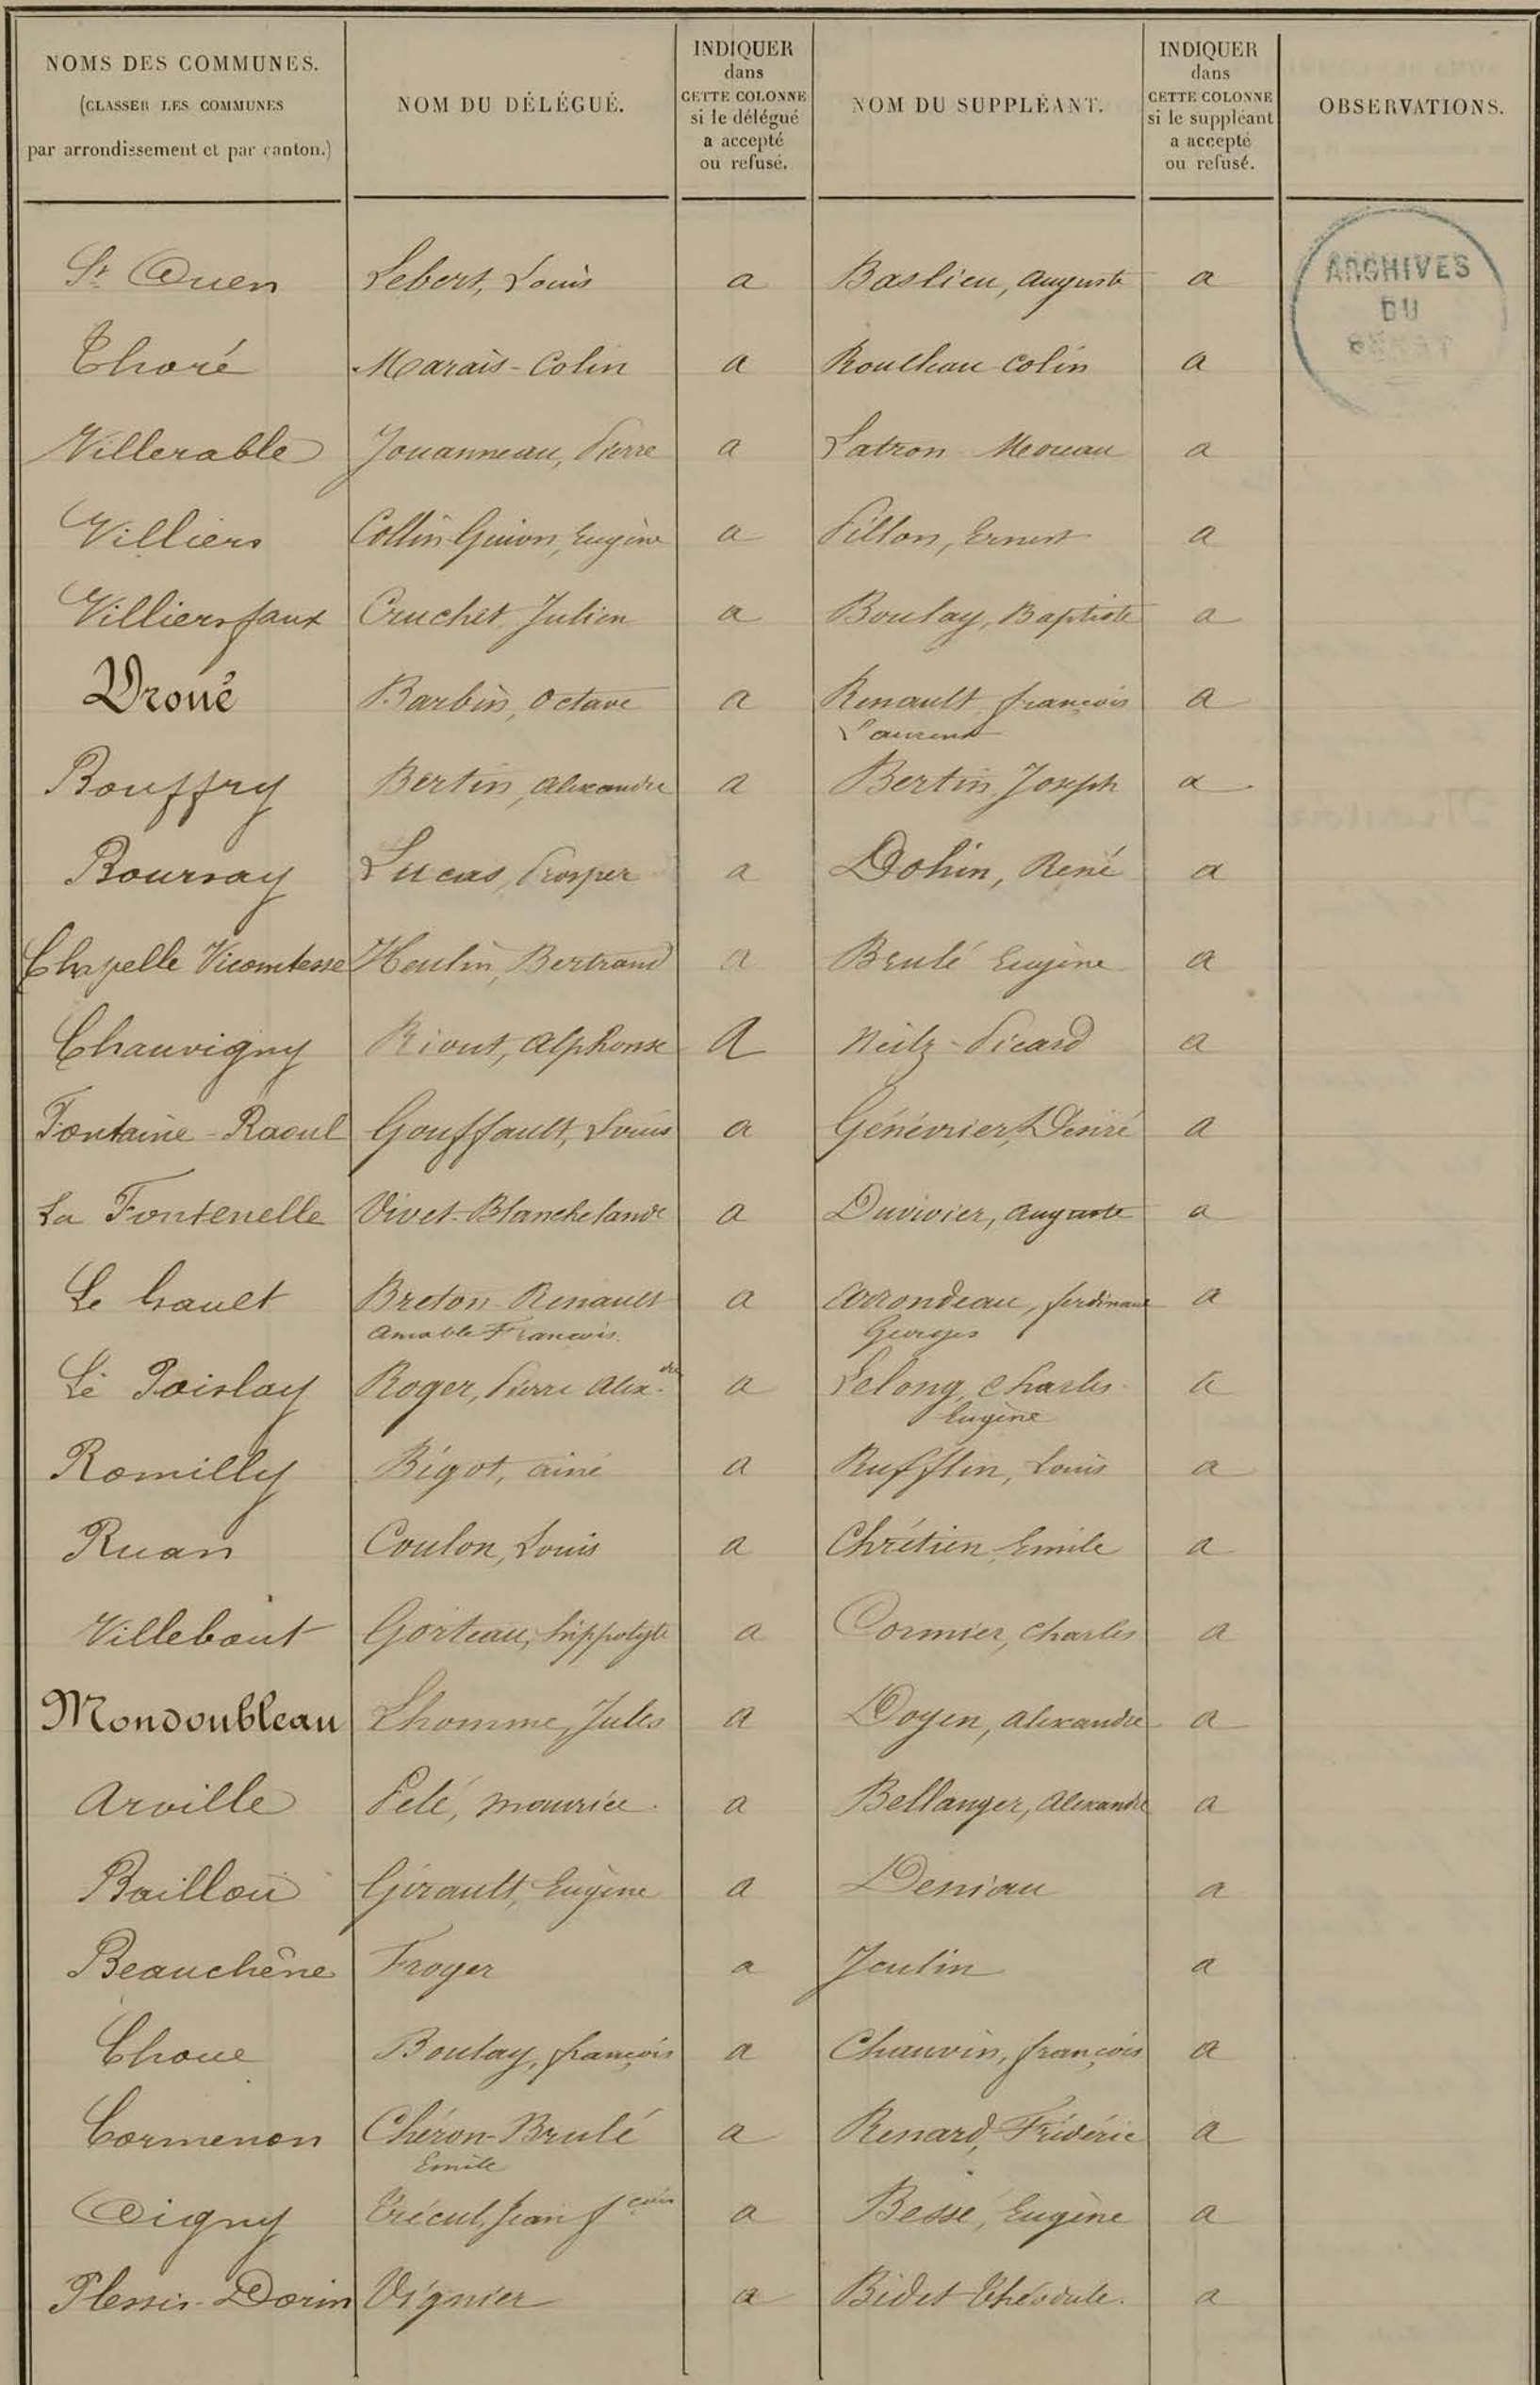 NOMS DES COMMUNES.
(CLASSER LES COMMUNES
par arrondissement et par canton.)
NOM DU DÉLÉGUÉ.
INDIQUER
dans
CETTE COLONNE
si le délégué
a accepté
ou refusé.
NOM DU SUPPLÉANT.
INDIQUER
dans
CETTE COLONNE
si le suppléant
a accepté
ou refusé.
OBSERVATIONS.
ARCHIVES
DU
SÉNAT
St Ouen Lebert, Louis a Baslieu, Auguste a
Thoré Marais-Colin a Rouleau Colin a
Villerable Jouanneau, Pierre a Latron Moreau a
Villiers Collin Guion, Eugène a Fillon, Ernest a
Villiersfaux Cruchet, Julien a Boulay, Baptiste a
Droué Barbin, Octave a Renault, françois a
Laurent
Bouffry Bertin, Alexandre a Bertin, Joseph a
Boursay Lucas, Prosper a Dohin, René a
Chapelle Vicomtesse Heulin, Bertrand a Brulé Eugène a
Chauvigny Riout, Alphonse a Neilz-Picard a
Fontaine-Raoul Gouffault, Louis a Génévrier, Désiré a
La Fontenelle Vivet-Blanchelande a Duvivier, Auguste a
Le hault Breton Renault a Arrondeau, ferdinand a
Amable François. Georges
Le Poislay Roger, Pierre Alex.dre a Lelong, Charles a
Eugène
Romilly Bigot, ainé a Rufflin, Louis a
Ruan Coulon, Louis a Chrétien, Emile a
Villebout Gorteau, hippolyte a Cormier, Charles a
Mondoubleau Lhomme, Jules a Doyen, Alexandre a
Arville Pelé, Maurice. a Bellanger, Alexandre a
Baillou Girault, Eugène a Deniau a
Beauchêne Froger a Jeulin a
Choue Boulay, françois a Chauvin, françois a
Cormenon Chéron-Brulé a Renard, Frédéric a
Emile
Oigny Trécul, Jean fçois a Bessé, Eugène a
Plessis-Dorin Vignier a Bidet Théodule. a